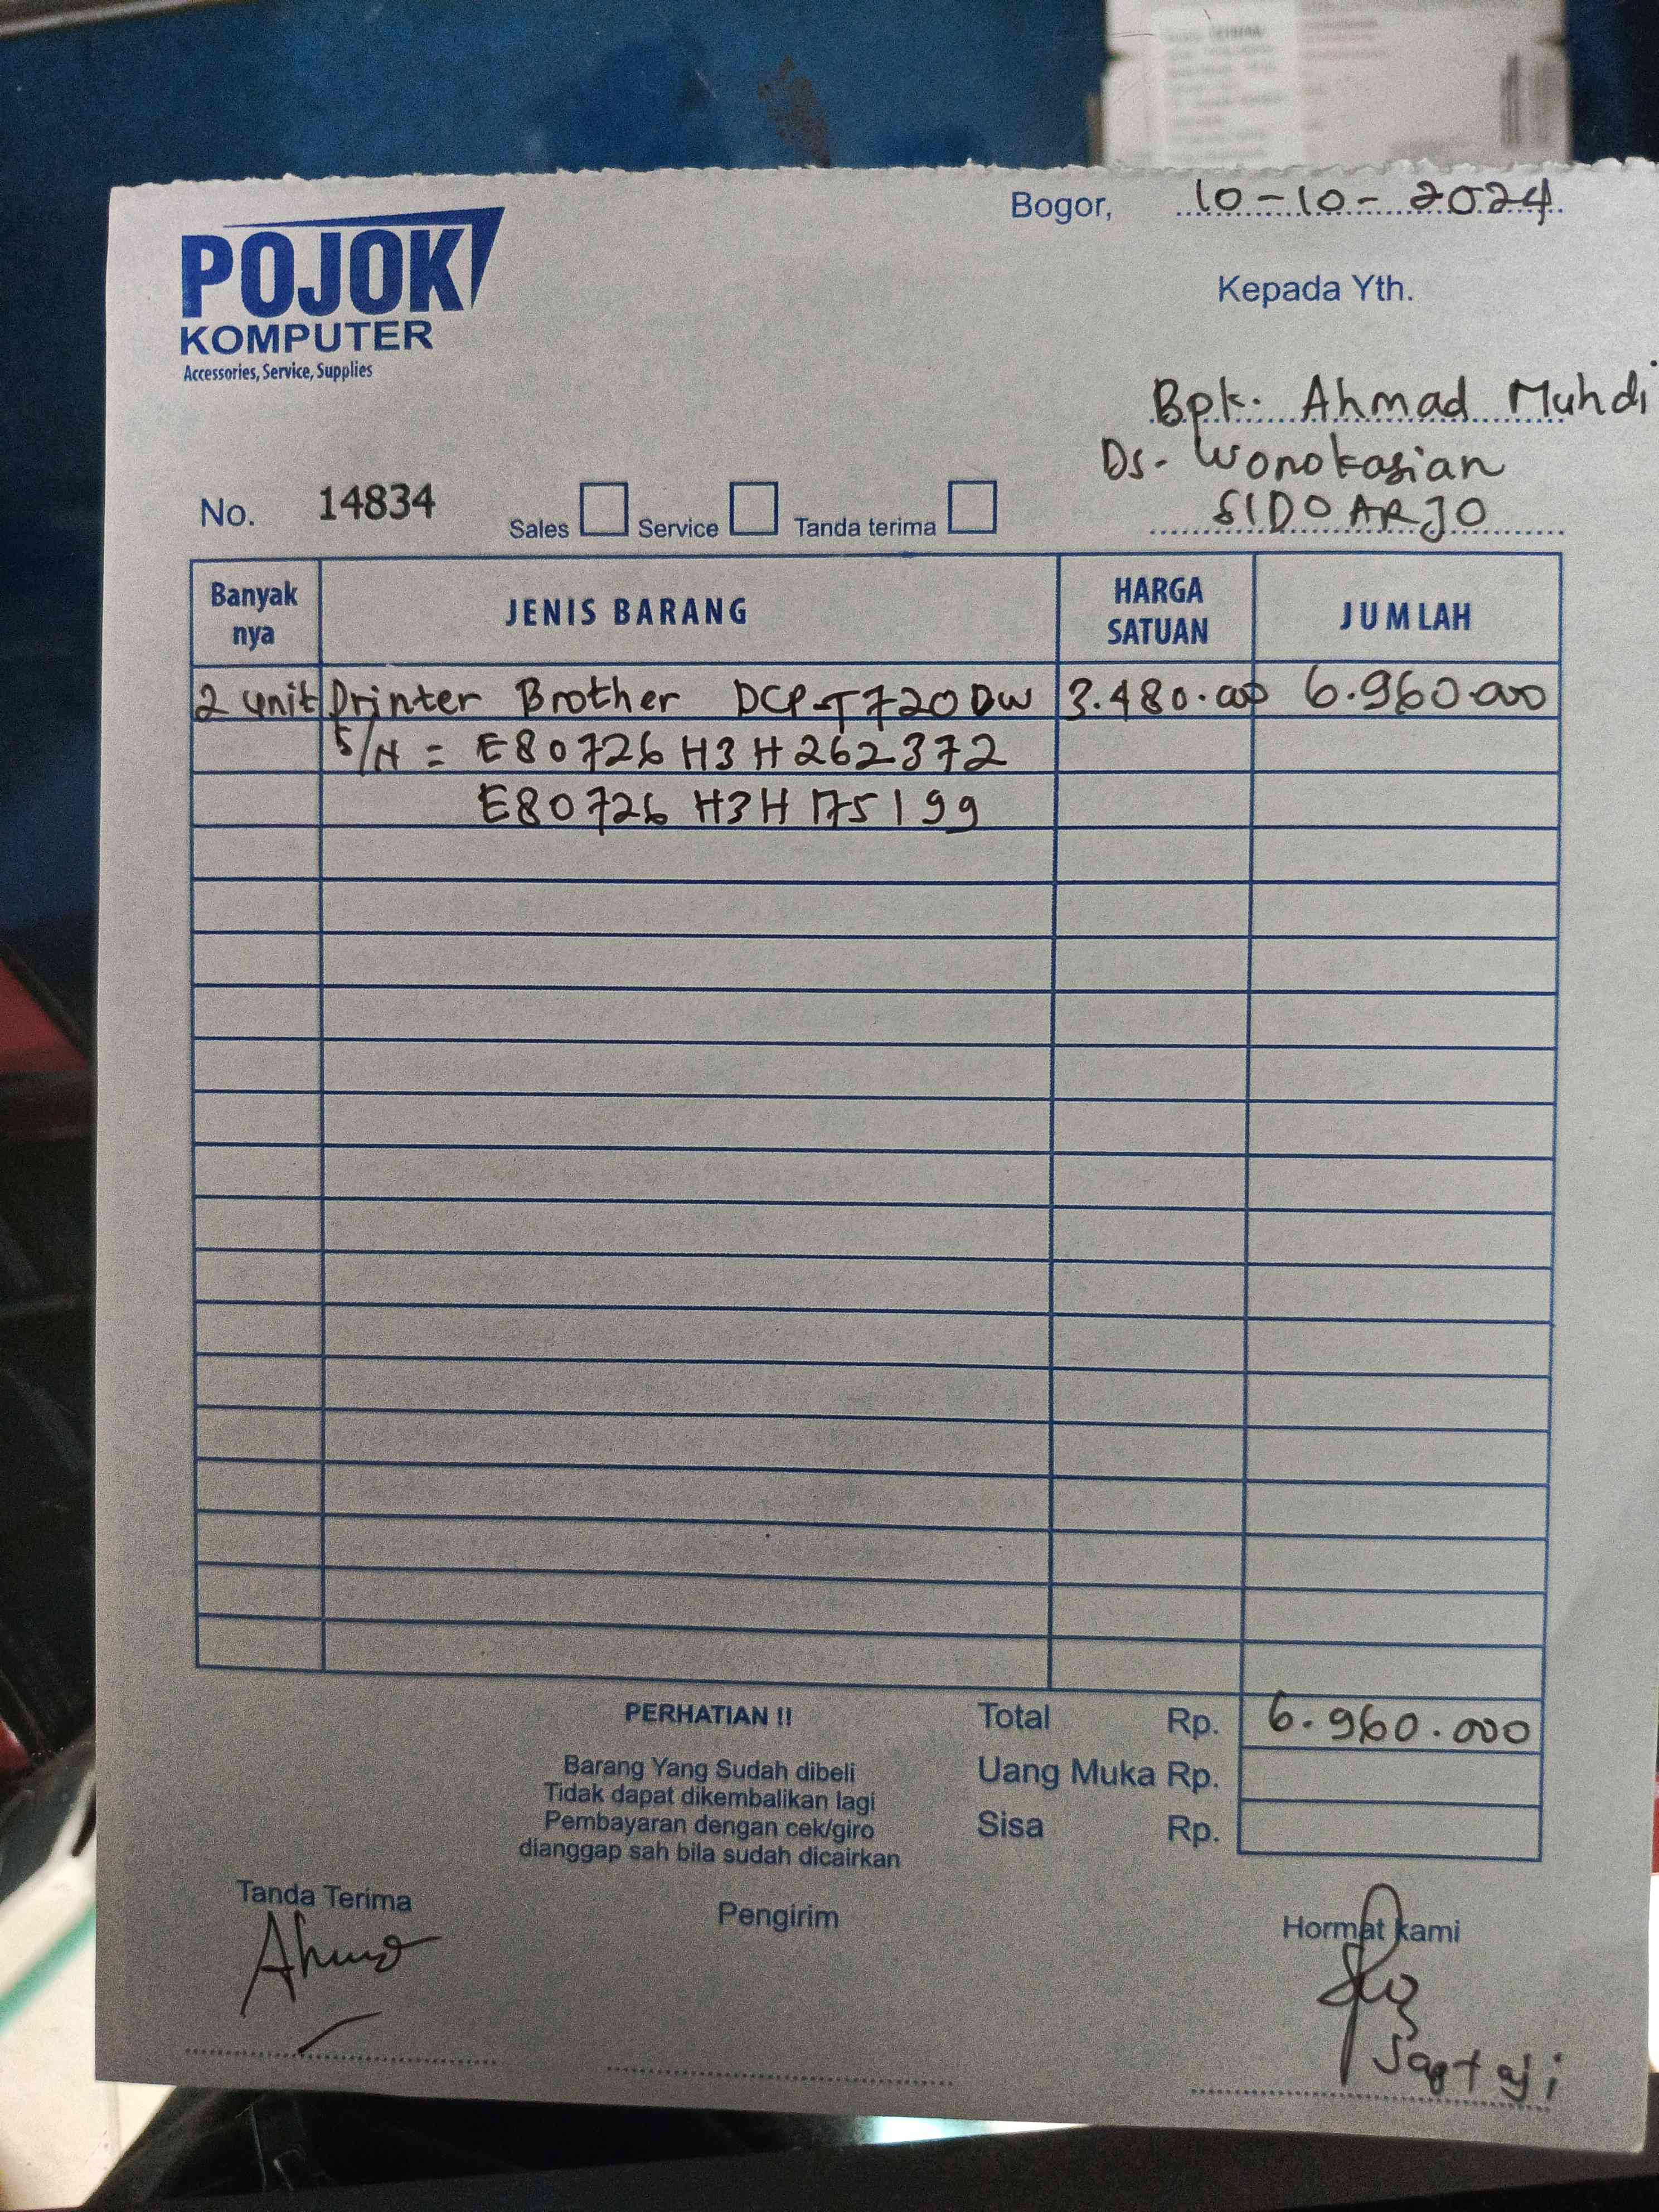 Bogor, 10-10-2024
POJOK
KOMPUTER
Accessories, Service, Supplies
Kepada Yth.
Bpk. Ahmad Muhdi
Ds. Wonokasian
SIDOARJO
No. 14834 Sales Service Tanda terima
Banyak nya JENIS BARANG HARGA SATUAN JUMLAH
2 unit Printer Brother DCP-T720DW 3.480.000 6.960.000
S/N = E80726H3H262372
E80726H3H175199
PERHATIAN !!
Barang Yang Sudah dibeli
Tidak dapat dikembalikan lagi
Pembayaran dengan cek/giro
dianggap sah bila sudah dicairkan
Total Rp. 6.960.000
Uang Muka Rp.
Sisa Rp.
Tanda Terima Pengirim Hormat kami